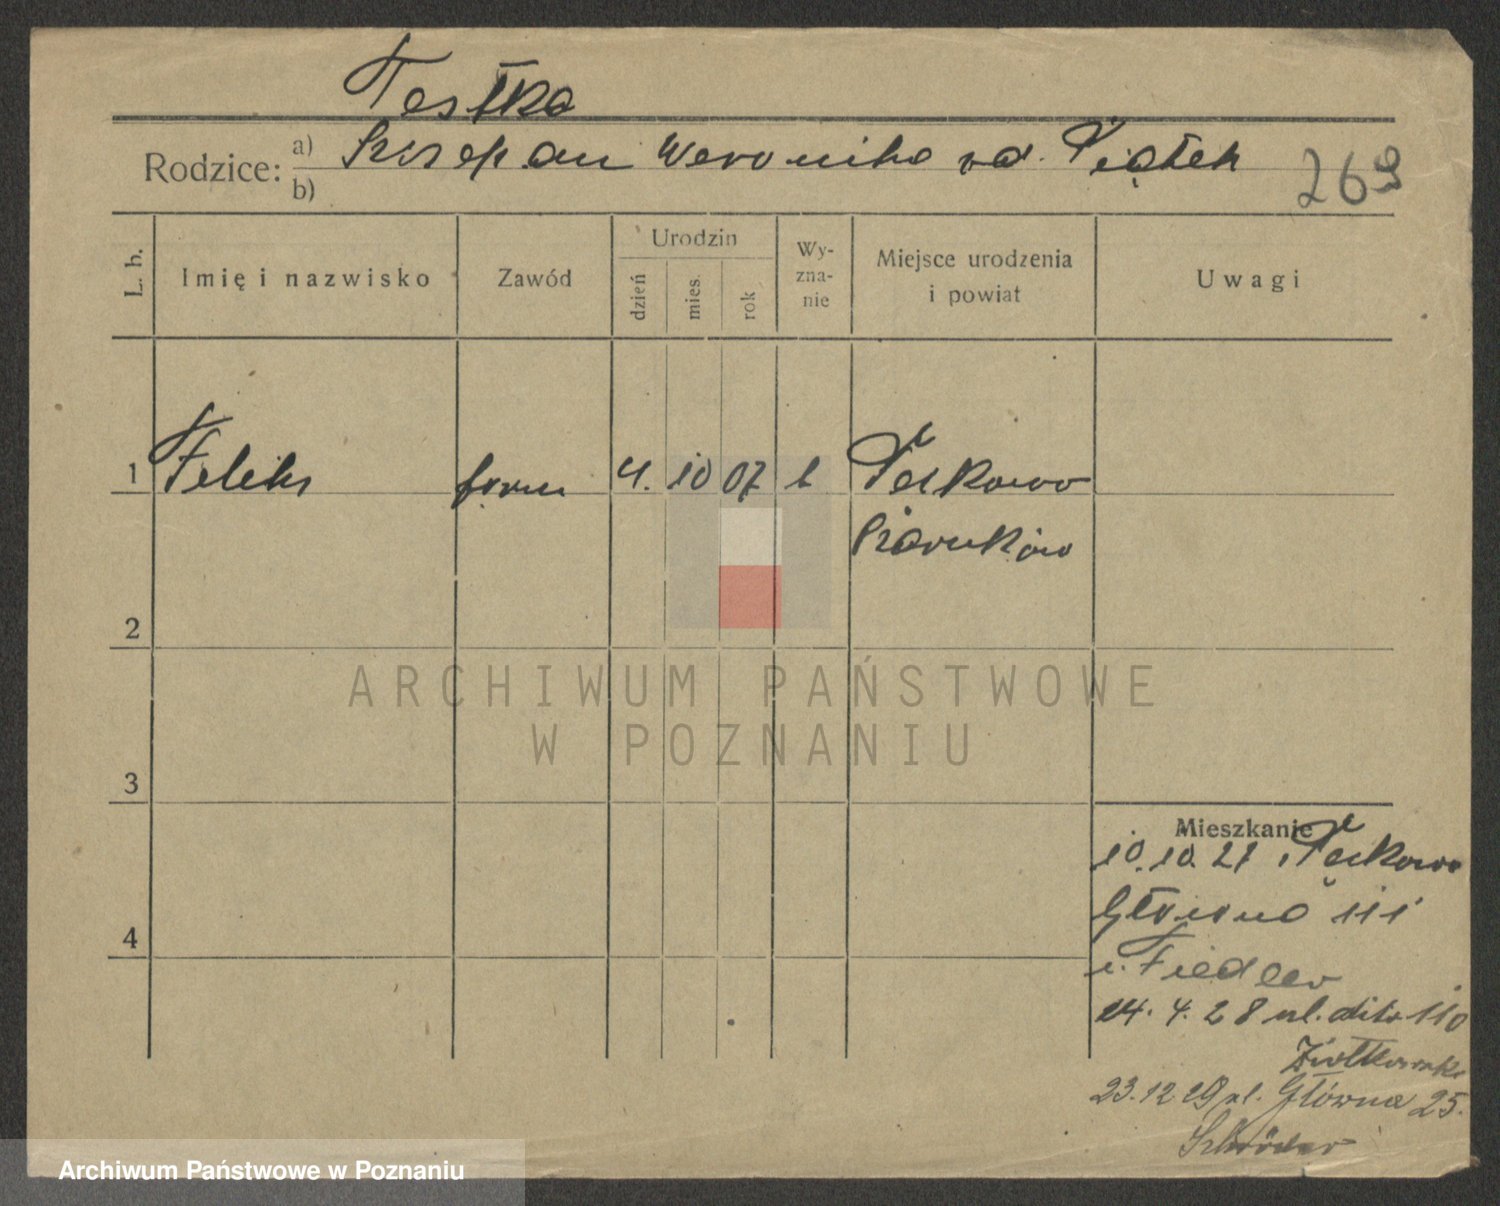 Testka
Rodzice: a) Szczepan Weronika z d. Piątek
b)
269
L. b.
Imię i nazwisko
Zawód
Urodzin
dzień
mies.
rok
Wy-
zna-
nie
Miejsce urodzenia
i powiat
Uwagi
1 Feliks 4. 10 07
2
3
4
Mieszkanie
10.10.27
Główna 111
Fiedler
24. 4. 28 ul. dito 110
Ziółkowski
23.12.29 ul. Główna 25.
Schröder
ARCHIWUM PAŃSTWOWE
W POZNANIU
Archiwum Państwowe w Poznaniu